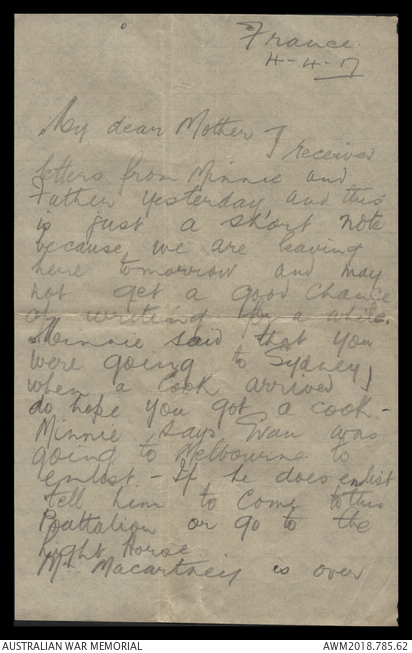 France.
4-4-17
My dear Mother
I received
letters from Minnie and
Father yesterday and this
is just a short note
because we are leaving
here tomorrow and may
not get a good chance
of writing for a while.
Minnie said that you
were going to Sydney
when a Cook arrived I
do hope you got a cook -
Minnie says Ivan was
going to Melbourne to
enlist. - If he does enlist
tell him to come to this
Battalion or go to the
Light Horse
Mr. Macartney is over
AUSTRALIAN WAR MEMORIAL
AWM2018.785.62